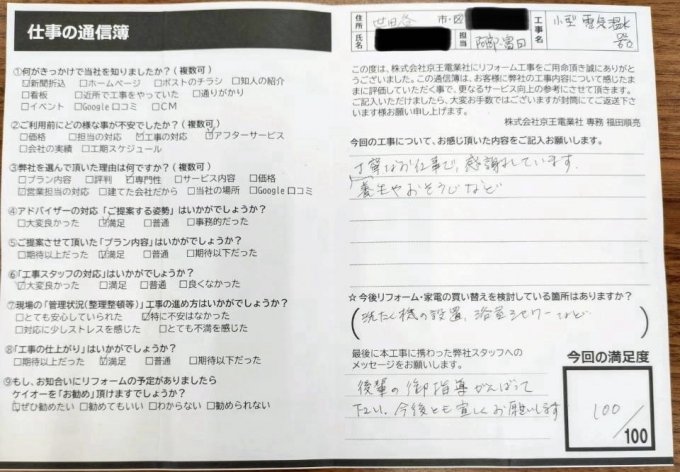 仕事の通信簿
①何がきっかけで当社を知りましたか？(複数可)
☑新聞折込 □ホームページ □ポストのチラシ □知人の紹介
□看板 □近所で工事をやっていた □通りがかり
□イベント □Google口コミ □CM
②ご利用前にどの様な事が不安でしたか？(複数可)
□価格 □担当の対応 ☑工事の対応 ☑アフターサービス
□会社の実績 □工期スケジュール
③弊社を選んで頂いた理由は何ですか？(複数可)
□プラン内容 □評判 ☑専門性 □サービス内容 □価格
☑営業担当の対応 □建てた会社だから □当社の場所 □Google口コミ
④アドバイザーの対応「ご提案する姿勢」はいかがでしょうか？
□大変良かった ☑満足 □普通 □事務的だった
⑤ご提案させて頂いた「プラン内容」はいかがでしょうか？
□期待以上だった ☑満足 □普通 □期待以下だった
⑥「工事スタッフの対応」はいかがでしょうか？
☑大変良かった □満足 □普通 □良くなかった
⑦現場の「管理状況(整理整頓等)」工事の進め方はいかがでしょうか？
□とても安心していられた ☑特に不安はなかった
□対応に少しストレスを感じた □とても不満を感じた
⑧「工事の仕上がり」はいかがでしょうか？
□期待以上だった ☑満足 □普通 □期待以下だった
⑨もし、お知合いにリフォームの予定がありましたら
ケイオーを「お勧め」頂けますでしょうか？
☑ぜひ勧めたい □勧めてもいい □わからない □勧められない
住所 世田谷 市・区
氏名 担当 阿部・富田
工事名 小型 電気温水器
この度は、株式会社京王電業社にリフォーム工事をご用命頂き誠にありがと
うございました。この通信簿は、お客様に弊社の工事内容について感じたま
まに評価していただく事で、更なるサービス向上の参考にさせて頂きます。
ご記入いただけましたら、大変お手数ではございますが封筒にてご返送下さ
います様お願い申し上げます。
株式会社京王電業社 専務 福田順亮
今回の工事について、お感じ頂いた内容をご記入お願いします。
丁寧なお仕事で、感謝しています。
養生やおそうじなど
☆今後リフォーム・家電の買い替えを検討している箇所はありますか？
(洗たく機の設置、浴室シャワーなど)
最後に本工事に携わった弊社スタッフへの
メッセージをお願いします。
後輩の御指導がんばって
下さい。今後とも宜しくお願いします
今回の満足度
100/100